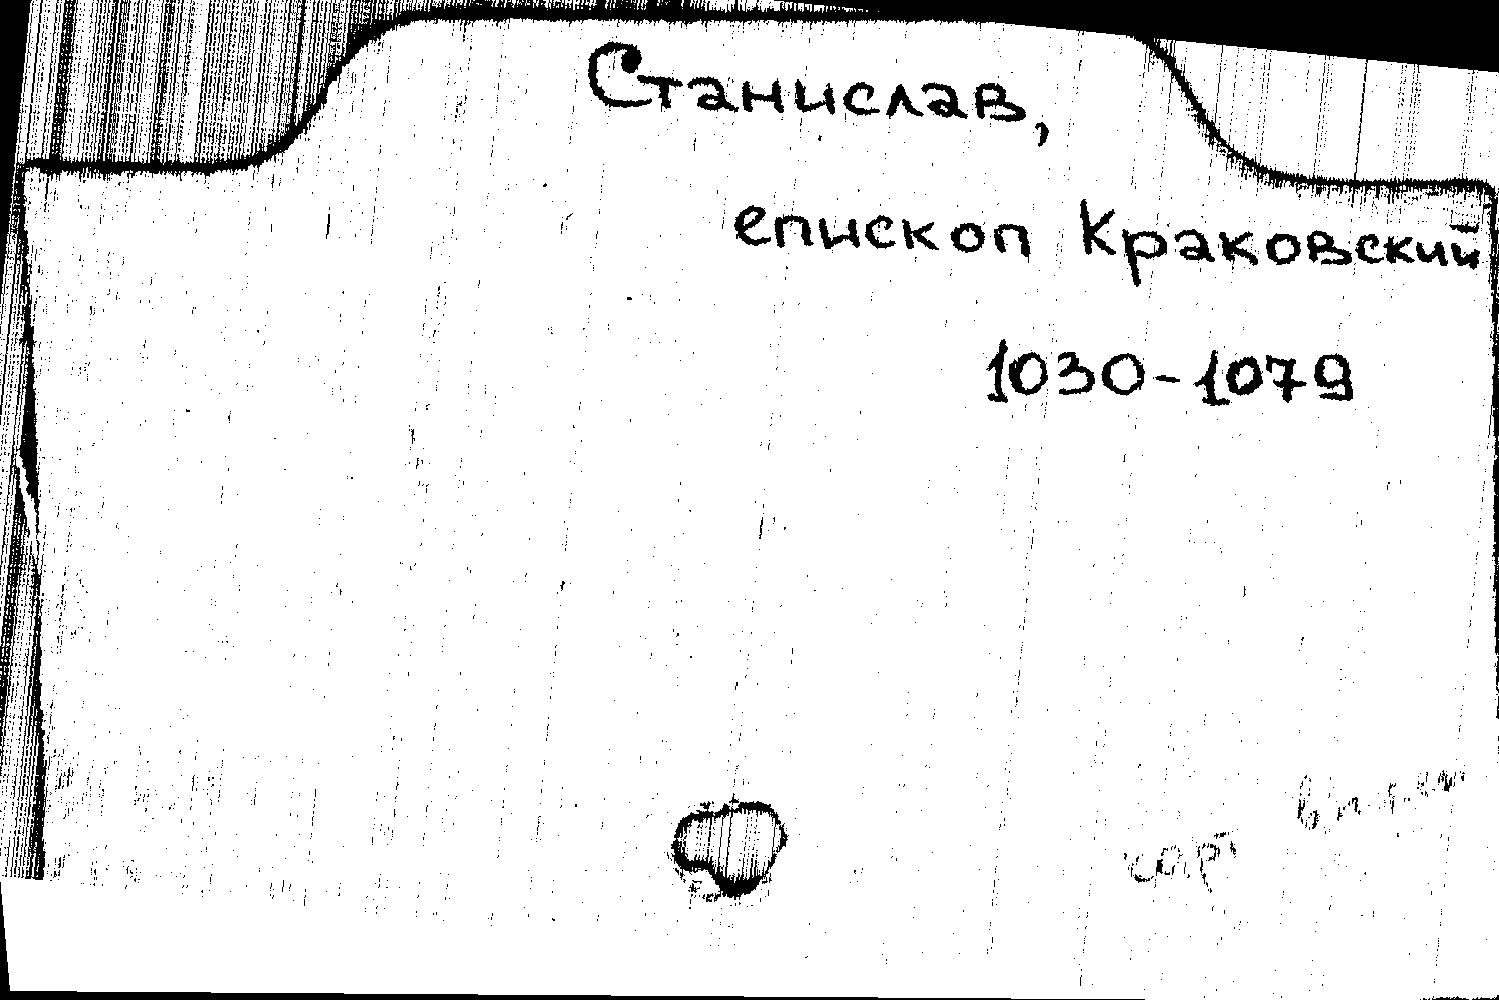 Станислав,
епископ Краковский
1030-1079